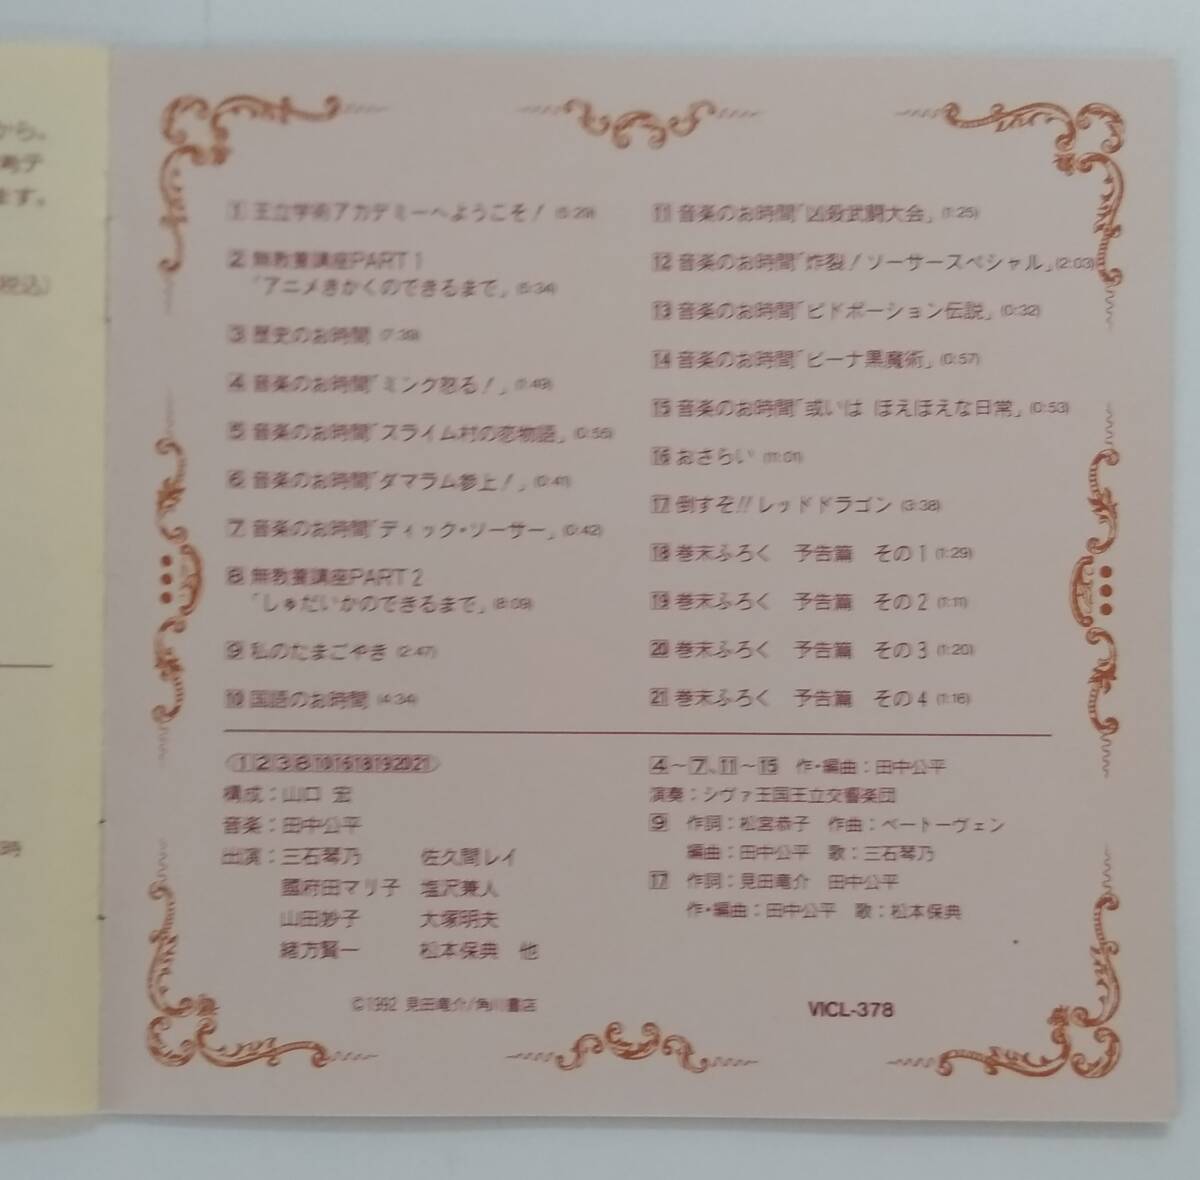 から。
考テ
ます。
税込)
時
1 王立学術アカデミーへようこそ! (5:29)
2 無教養講座PART1
「アニメきかくのできるまで」(5:34)
3 歴史のお時間 (7:39)
4 音楽のお時間「ミンク怒る!」(1:49)
5 音楽のお時間「スライム村の恋物語」(0:55)
6 音楽のお時間「ダマラム参上!」(0:41)
7 音楽のお時間「ディック・ソーサー」(0:42)
8 無教養講座PART2
「しゅだいかのできるまで」(8:09)
9 私のたまごやき (2:47)
10 国語のお時間 (4:34)
11 音楽のお時間「凶殺武闘大会」(1:25)
12 音楽のお時間「炸裂!ソーサースペシャル」(2:03)
13 音楽のお時間「ビドポーション伝説」(0:32)
14 音楽のお時間「ピーナ黒魔術」(0:57)
15 音楽のお時間「或いは ほえほえな日常」(0:53)
16 おさらい (11:01)
17 倒すぞ!!レッドドラゴン (3:38)
18 巻末ふろく 予告篇 その1 (1:29)
19 巻末ふろく 予告篇 その2 (1:11)
20 巻末ふろく 予告篇 その3 (1:20)
21 巻末ふろく 予告篇 その4 (1:16)
1 2 3 8 10 16 18 19 20 21
構成:山口 宏
音楽:田中公平
出演:三石琴乃 佐久間レイ
國府田マリ子 塩沢兼人
山田妙子 大塚明夫
緒方賢一 松本保典 他
4〜7、11〜15 作・編曲:田中公平
演奏:シヴァ王国王立交響楽団
9 作詞:松宮恭子 作曲:ベートーヴェン
編曲:田中公平 歌:三石琴乃
17 作詞:見田竜介 田中公平
作・編曲:田中公平 歌:松本保典
©1992 見田竜介/角川書店
VICL-378